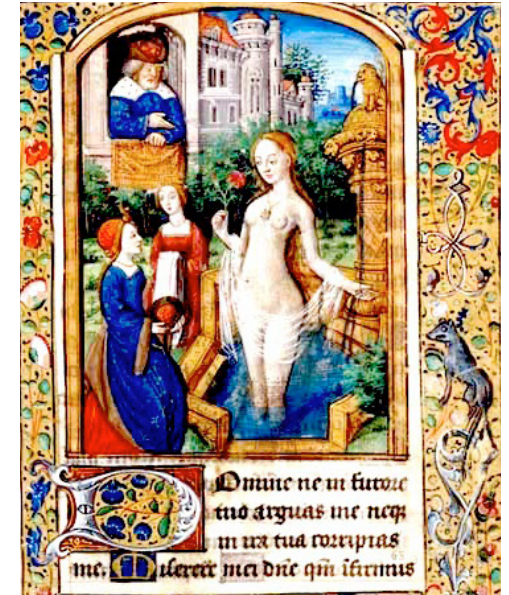 Domine ne in furore
tuo arguas me neqȝ
in ira tua corripias
me. Miserere mei dñe qm̄ īfirmus